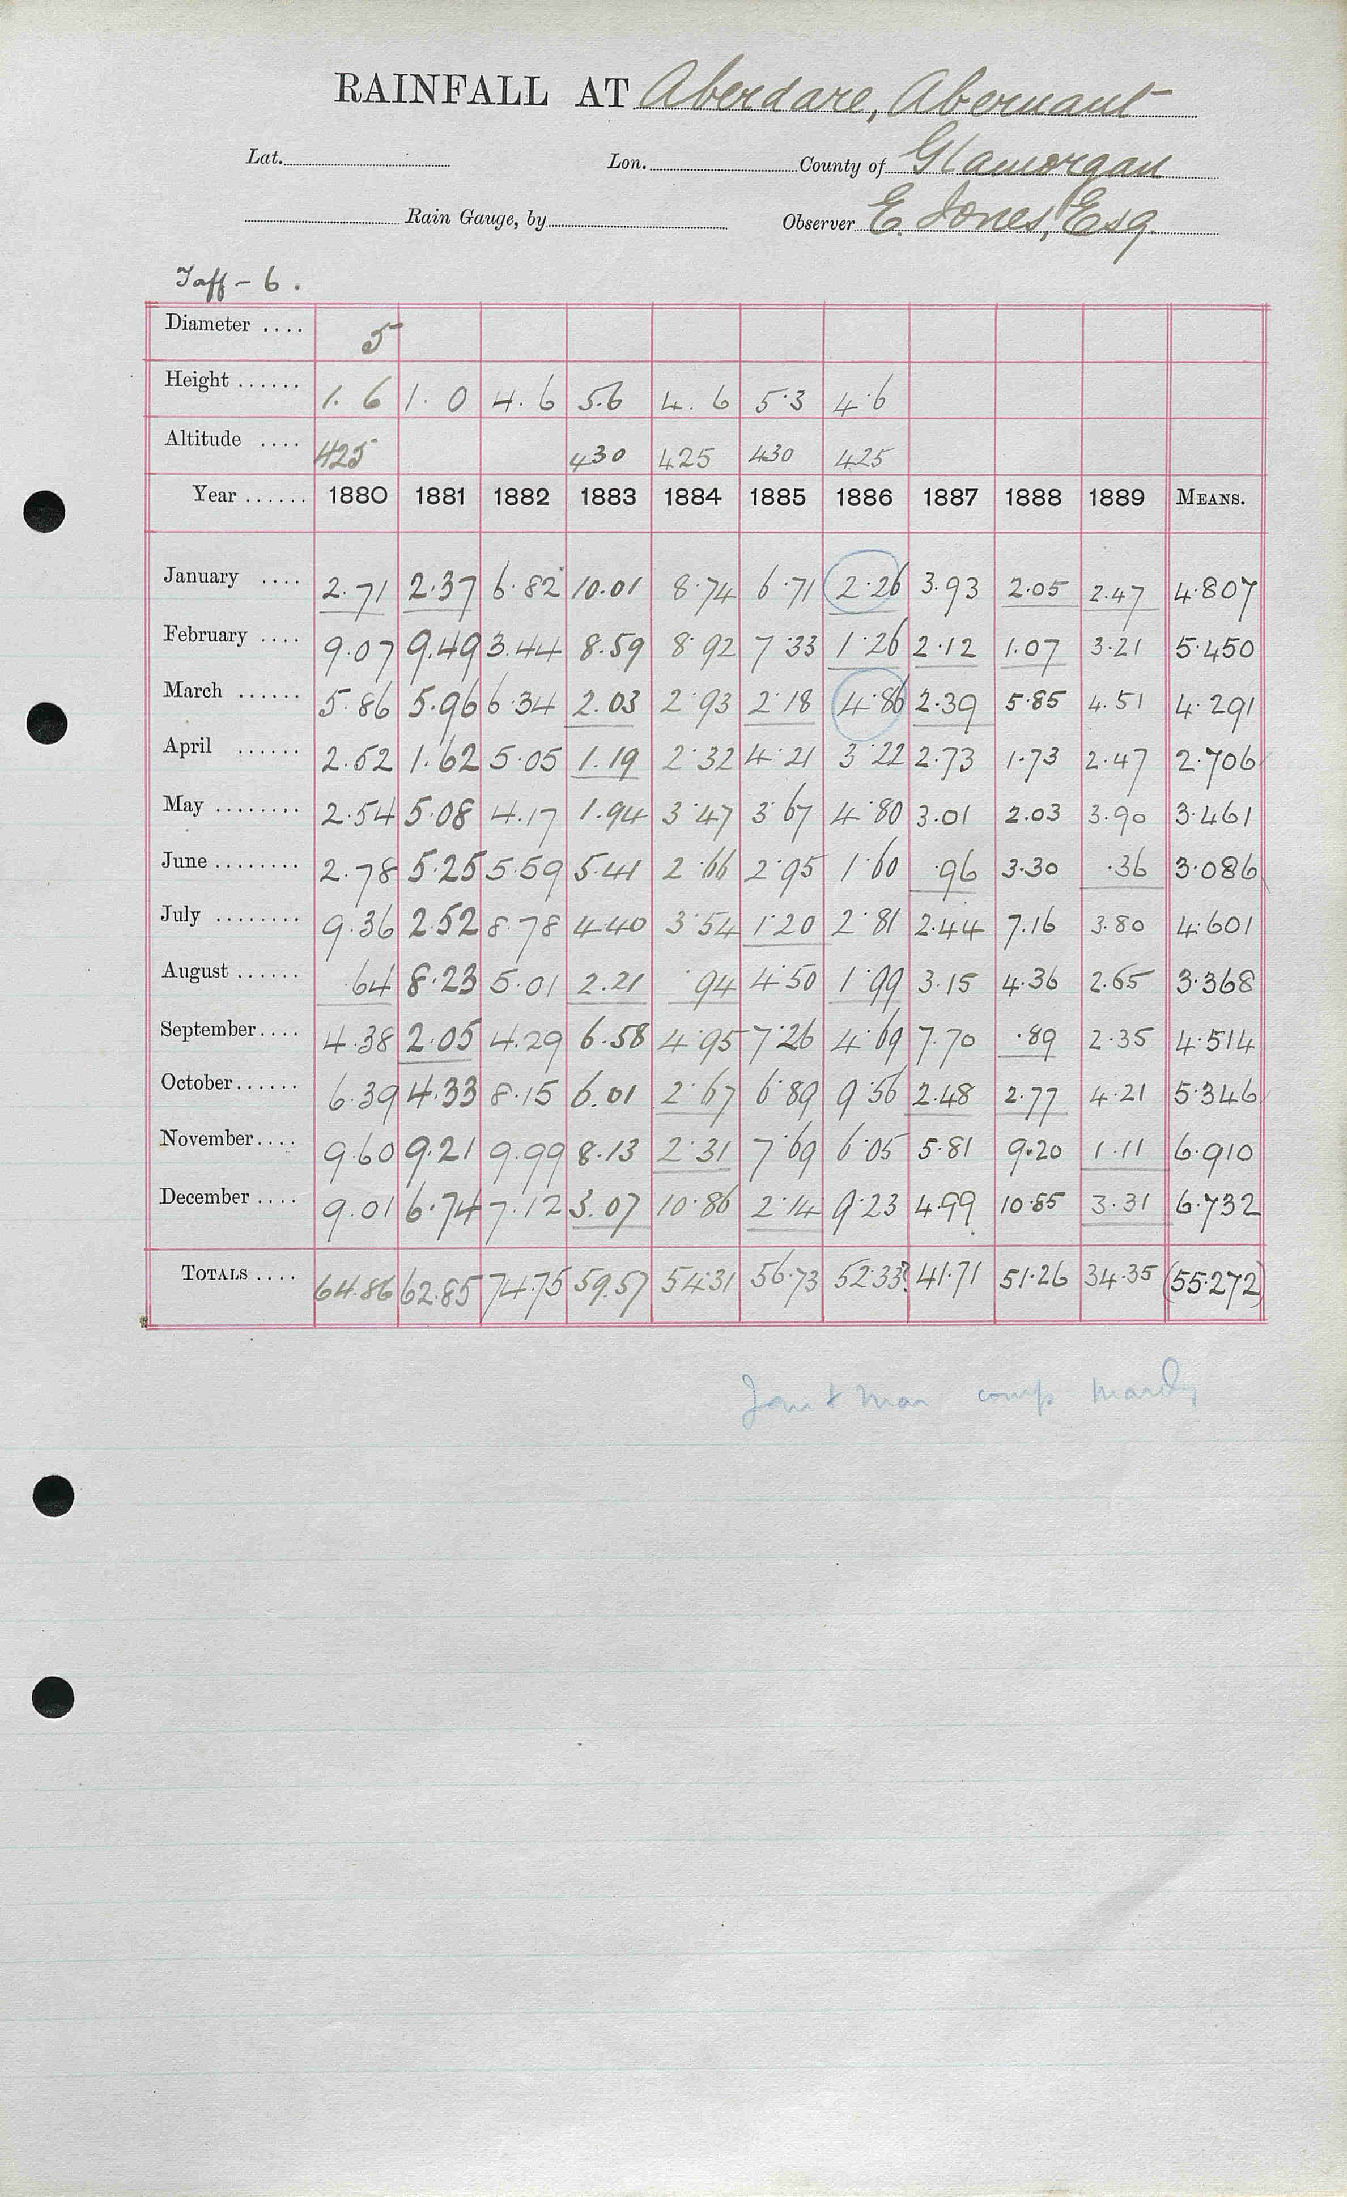 RAINFALL AT Aberdare, Abernant
Lat. Lon. County of Glamorgan
Rain Gauge, by Observer E. Jones, Esq.
Taff - 6.
Diameter .... 5
Height ...... 1.6 1.0 4.6 5.6 4.6 5.3 4.6
Altitude .... 425 430 425 430 425
Year ...... 1880 1881 1882 1883 1884 1885 1886 1887 1888 1889 MEANS.
January .... 2.71 2.37 6.82 10.01 8.74 6.71 2.26 3.93 2.05 2.47 4.807
February .... 9.07 9.49 3.44 8.59 8.92 7.33 1.26 2.12 1.07 3.21 5.450
March ...... 5.86 5.96 6.34 2.03 2.93 2.18 4.86 2.39 5.85 4.51 4.291
April ...... 2.52 1.62 5.05 1.19 2.32 4.21 3.22 2.73 1.73 2.47 2.706
May ........ 2.54 5.08 4.17 1.94 3.47 3.67 4.80 3.01 2.03 3.90 3.461
June ........ 2.78 5.25 5.59 5.41 2.66 2.95 1.60 .96 3.30 .36 3.086
July ........ 9.36 2.52 8.78 4.40 3.54 1.20 2.81 2.44 7.16 3.80 4.601
August ...... .64 8.23 5.01 2.21 .94 4.50 1.99 3.15 4.36 2.65 3.368
September .... 4.38 2.05 4.29 6.58 4.95 7.26 4.69 7.70 .89 2.35 4.514
October ...... 6.39 4.33 8.15 6.01 2.67 6.89 9.56 2.48 2.77 4.21 5.346
November .... 9.60 9.21 9.99 8.13 2.31 7.69 6.05 5.81 9.20 1.11 6.910
December .... 9.01 6.74 7.12 3.07 10.86 2.14 9.23 4.99 10.85 3.31 6.732
TOTALS .... 64.86 62.85 74.75 59.57 54.31 56.73 52.33? 41.71 51.26 34.35 (55.272)
Jan & Mar comp Mardy